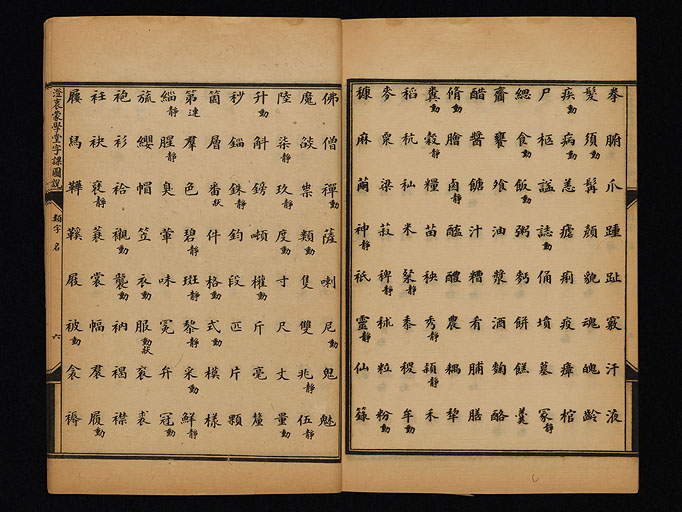 拳腑爪踵趾竅汗液
髮須髯顏貌魂魄齡
疾動病動恙瘧痢疫瘴棺
尸柩謚誌動俑墳墓冢靜
緦食動飯動粥麪餅餻羹
齋饔飧油漿酒麴酪
醋醬餹汁糟肴脯膳
脩動膾鹵靜醢醴農耦犂
糞動穀靜糧苗秧秀靜穎靜禾
稻秔秈米粲靜黍稷牟動
麥粟粱菽稗靜秫粒粉動
糠麻繭神靜祇靈靜仙籙
佛僧禪動薩喇尼動鬼魅
魔燄祟類動隻雙兆靜伍靜
陸柒靜玖靜度動寸尺丈量動
升動斛鎊噸權動斤毫釐
秒錙銖靜鈞段匹片顆
箇層番狀件格動式動模樣
第速羣色碧靜斑靜黎靜采動鮮靜
緇靜腥靜臭葷味冕弁冠動
旒纓帽笠衣動服動狀衮裘
袍衫袷襯動襲動衲褐襟
衽袂袞靜蓑裳幅裙履動
屨舄鞾鞵屐被動衾褥
澄衷蒙學堂字課圖說
類字
名
六